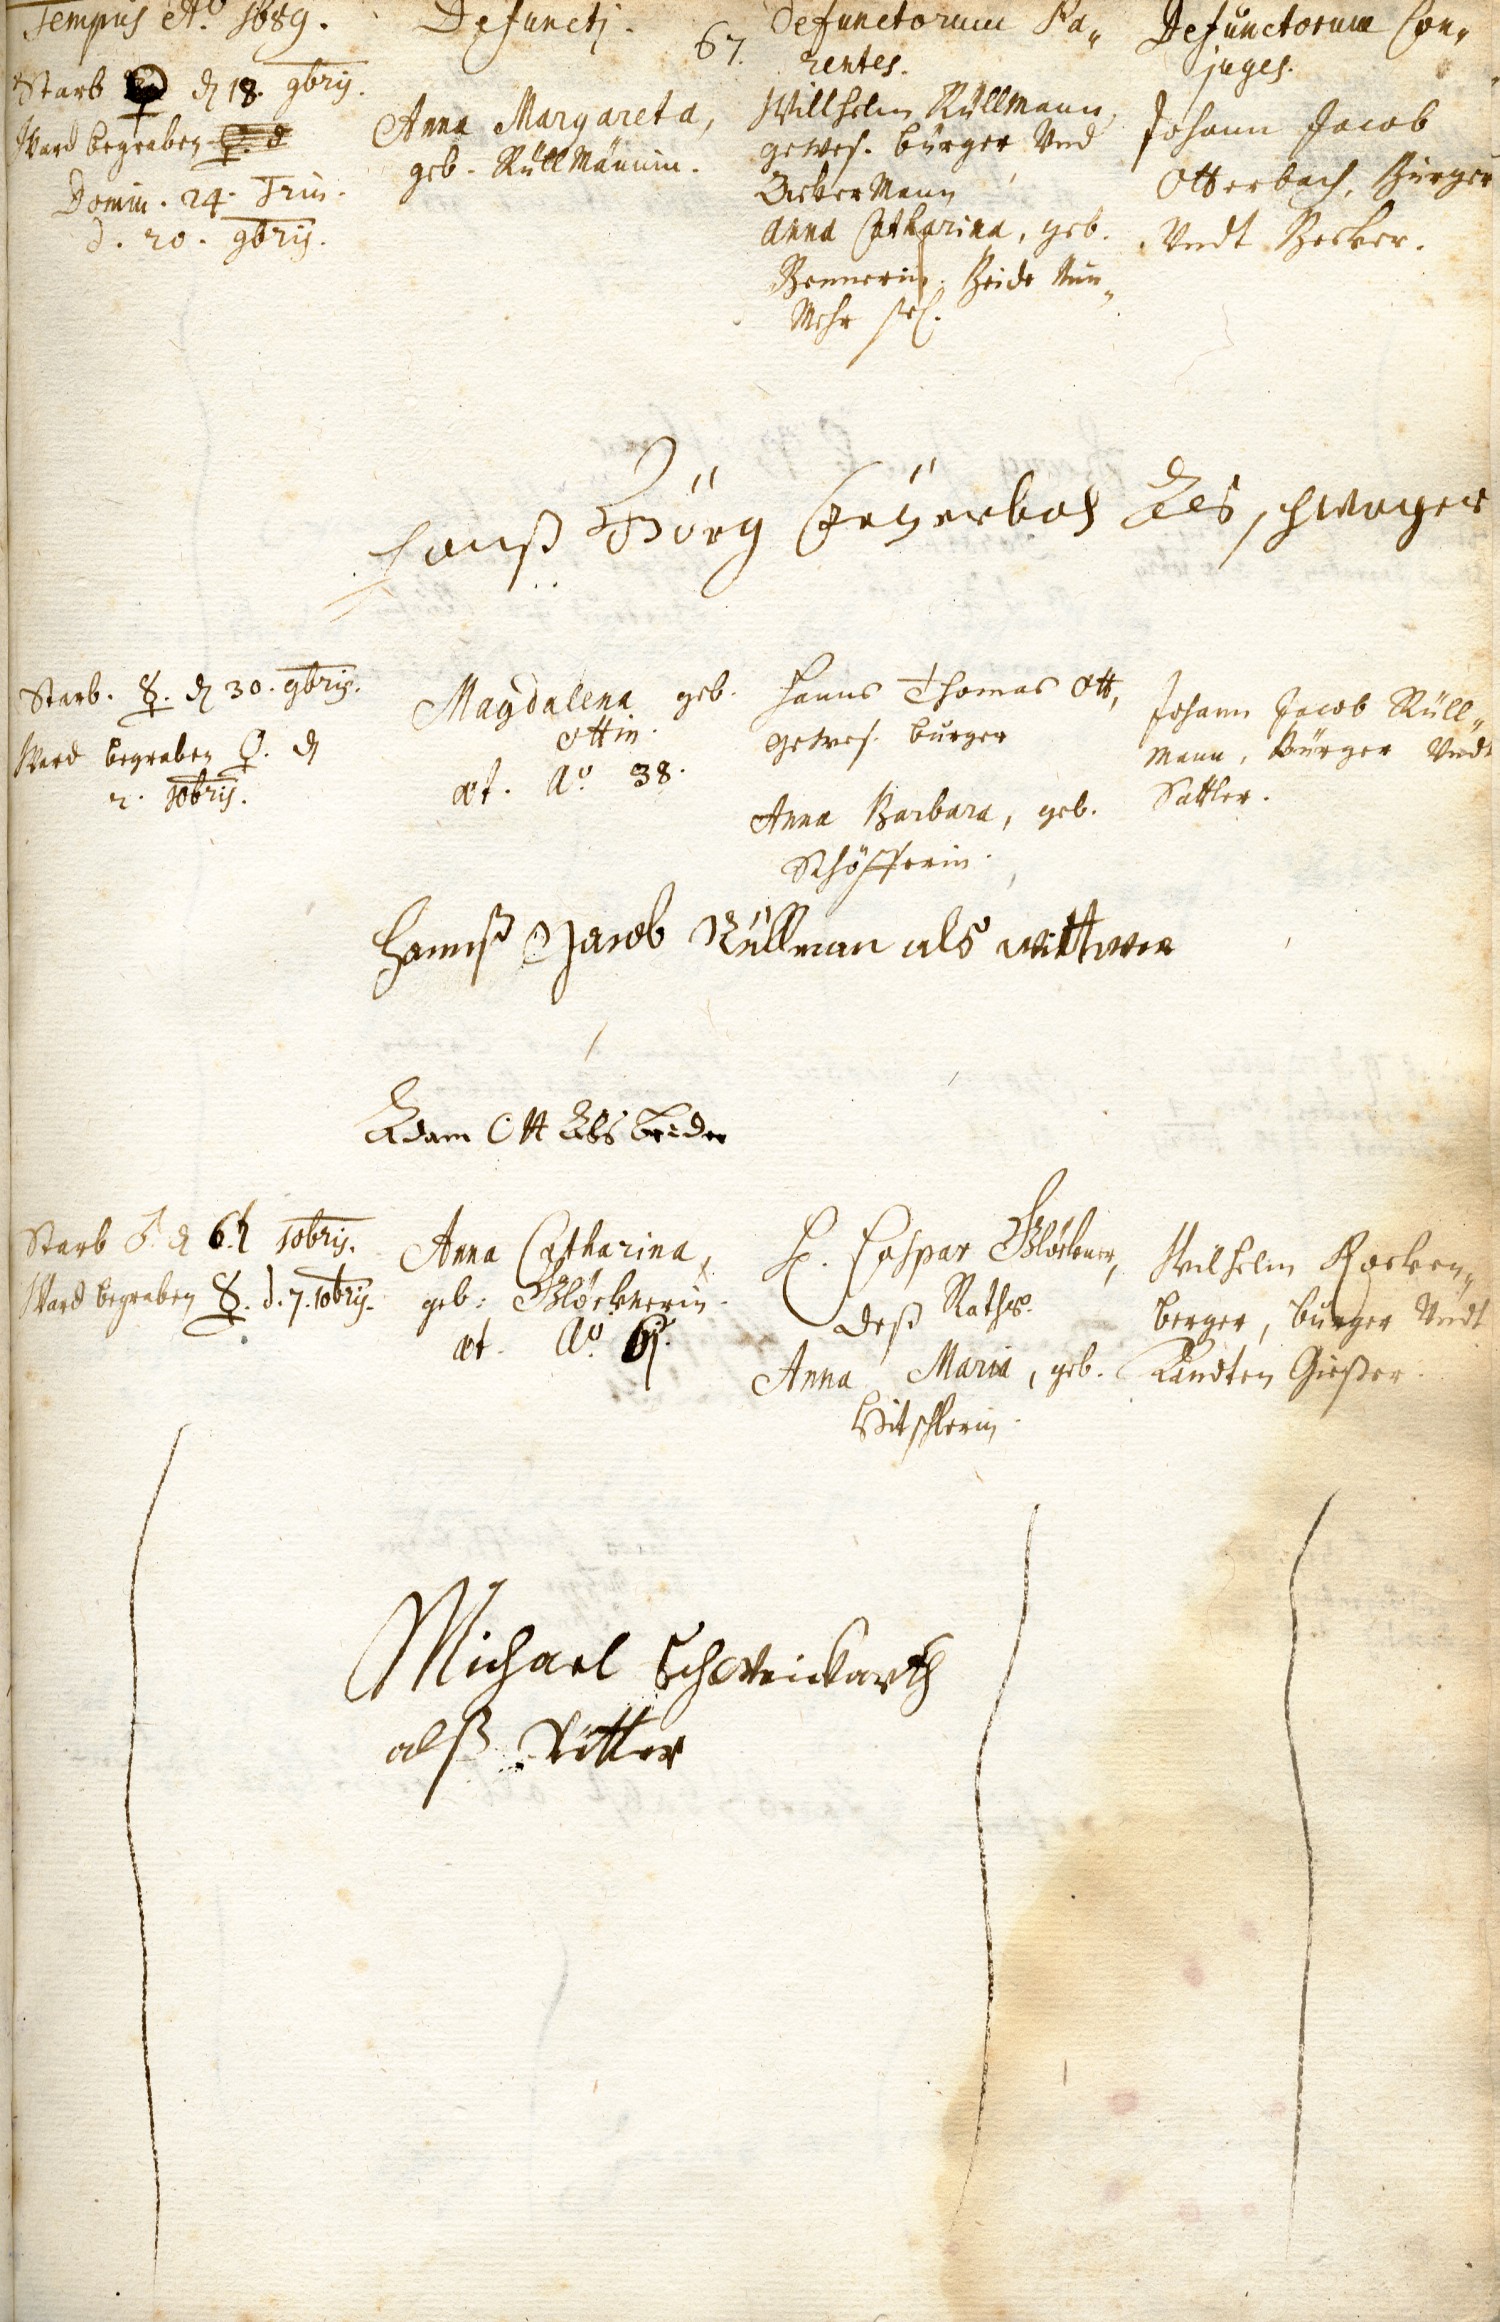 Tempus Aõ. 1689.
Defuncti.
67.
Defunctorum Pa„
rentes.
Defunctorum Con„
juges.
Starb ♀ d 18. 9bris.
Ward begraben ♀. d
Domin. 24. Trin.
d. 20. 9bris.
Anna Margareta,
geb. Rüllmännin.
Willhelm Rüllmann,
gewes. bürger Und
AckerMann
Anna Catharina, geb.
Bennerin. Beide Nun„
Mehr sel.
Johann Jacob
Otterbach, Bürger
Undt Becker.
Hanß Görg als schwager
Starb. ☿. d 30. 9bris.
Ward begraben ♀. d
2. 10bris.
Magdalena geb.
Ottin.
æt. Aº 38.
Hanns Thomas Ott,
gewes. bürger
Anna Barbara, geb.
Schöfferin.
Johann Jacob Rüll„
mann, Bürger Undt
Sattler.
Hannß Jacob Rüllman als wittwer
Adam Ott Als brider
Starb ♂ d 6. 10bris.
Ward begraben ☿. d. 7. 10bris.
Anna Catharina,
geb: Glöcknerin.
æt. Aº.
H. Caspar Glöckner,
deß Raths.
Anna Maria, geb.
Wilhelm Rocken„
berger, bürger Undt
Kandten Gießer.
Michael Schweickarth
alß Vetter